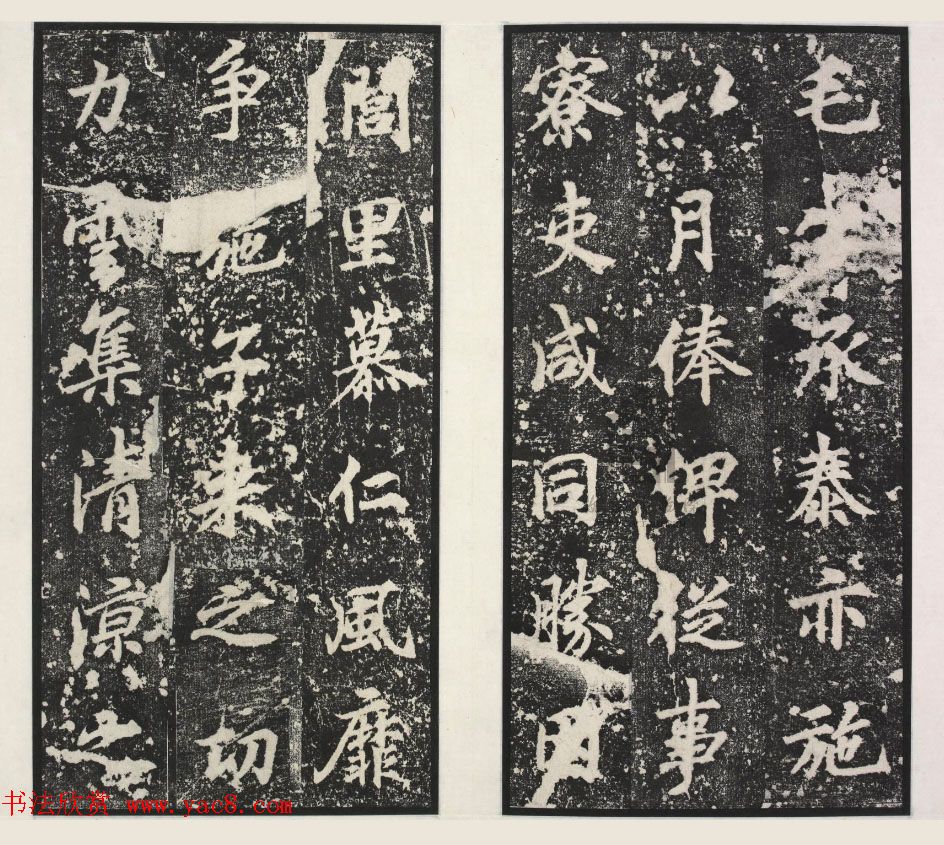 毛承泰亦施
以月俸俾從事
寮吏咸同勝因
閭里慕仁風靡
争施子來之切
力雲集清涼之
书法欣赏 www.yac8.com